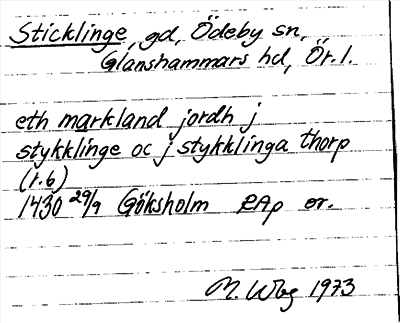 Sticklinge, gd, Ödeby sn,
Glanshammars hd, Ör. l.
eth markland jordh j
stykklinge oc j stykklinga thorp
(r. 6)
1430 29/9 Göksholm RAp or.
M. Wbg 1973